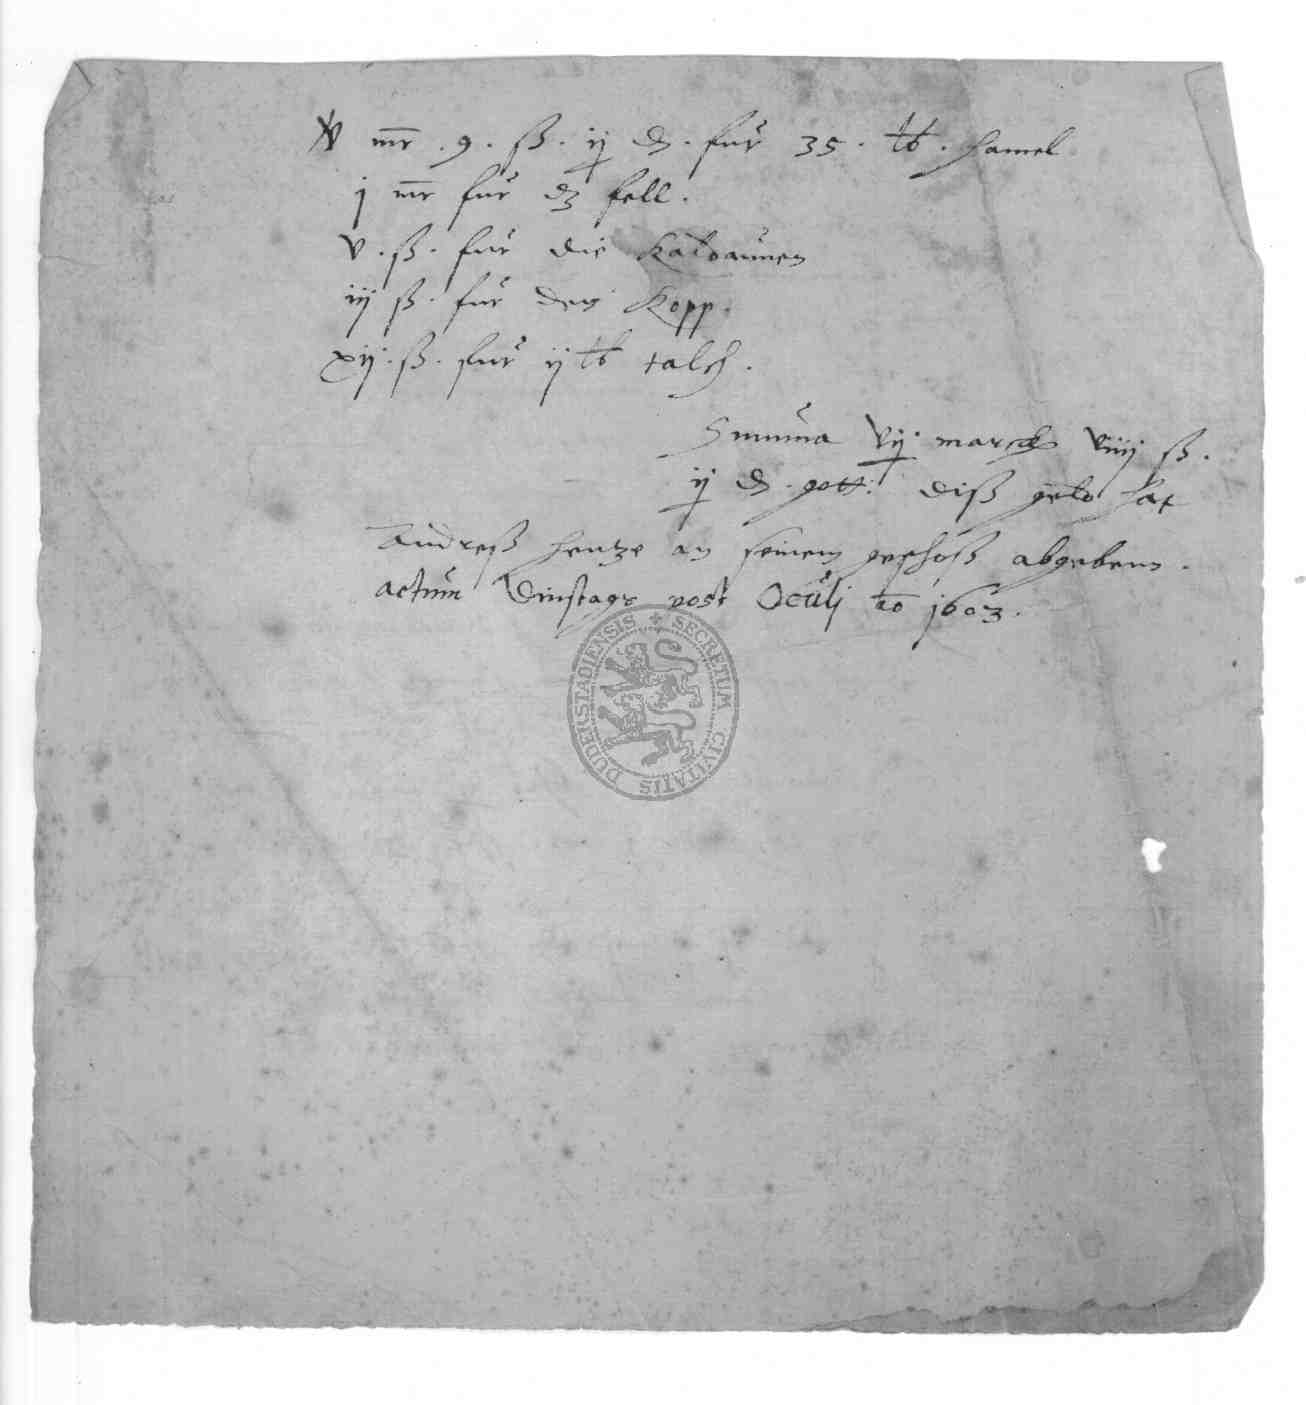 v mr . 9 . ß . ij ₰ . fur 35 . ℔ . hamel
j mr fur dz fell .
v . ß . fur die Kaldaunen
iij ß . fur den Kopp .
xij . ß . fur ij ℔ talch .
Summa vij . marck viiij ß .
ij ₰ . gott : diß geld hat
Andreß Hentze an seinem geschoß abgeben .
actum Dinstags post Oculj ao 1603 .
SECRETUM CIVITATIS DUDERSTADIENSIS